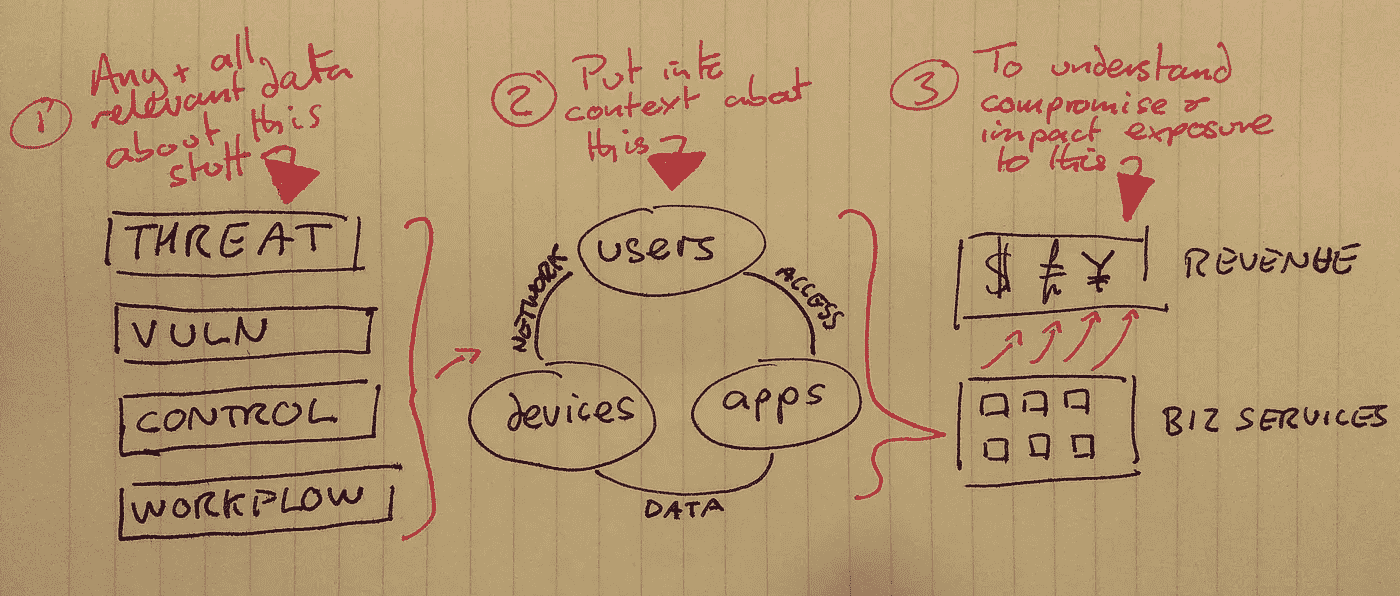 1
Any + all
relevant data
about this
stuff
THREAT
VULN
CONTROL
WORKFLOW
2
Put into
context about
this
users
NETWORK
ACCESS
devices
apps
DATA
3
To understand
compromise &
impact exposure
to this
$ £ ¥
REVENUE
BIZ SERVICES